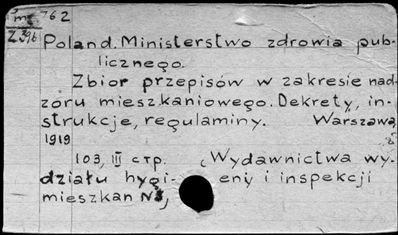 762
Z396
Poland. Ministerstwo zdrowia pub-
licznego.
Zbior przepisów w zakresie nad-
zoru mieszkaniowego. Dekrety, in-
strukcje, regulaminy. Warszawa,
1919
103, III стр. (Wydawnictwa wy-
działu hygi- eny i inspekcji
mieszkan